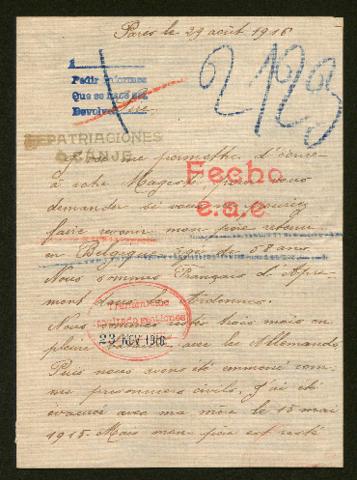 Paris le 29 août 1916
1
Pedir informes
Que se hace
Devolver
2123
REPATRIACIONES
O CANJE
me permettre d'écrire
à votre Majesté, pour vous
Fecho
e.a.e
demander si vous
faire revenir mon père retenu
en Belgique âgé de 58 ans
Nous sommes Français d'Apre
mont dans les Ardennes.
Nous sommes restés trois mois en
pleine avec les Allemands
23 NOV 1916
Puis nous avons été emmené com
me prisonniers civils. J'ai été
évacué avec ma mère le 15 mai
1915. Mais mon père est resté